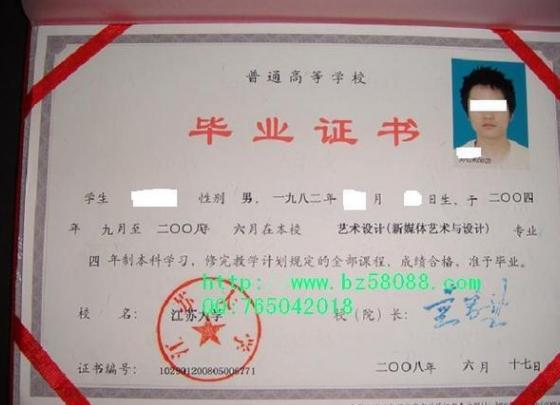 普通高等学校
毕业证书
学生 性别 男，一九八二年 月 日生，于二〇〇四
年 九月至二〇〇八年 六月在本校 艺术设计(新媒体艺术与设计) 专业
四 年制本科学习，修完教学计划规定的全部课程，成绩合格，准予毕业。
http: www.bz58088.com
QQ:765042018
校 名： 江苏大学 校（院）长：
江苏大学
证书编号： 102991200805006771 二〇〇八年 六月 十七日